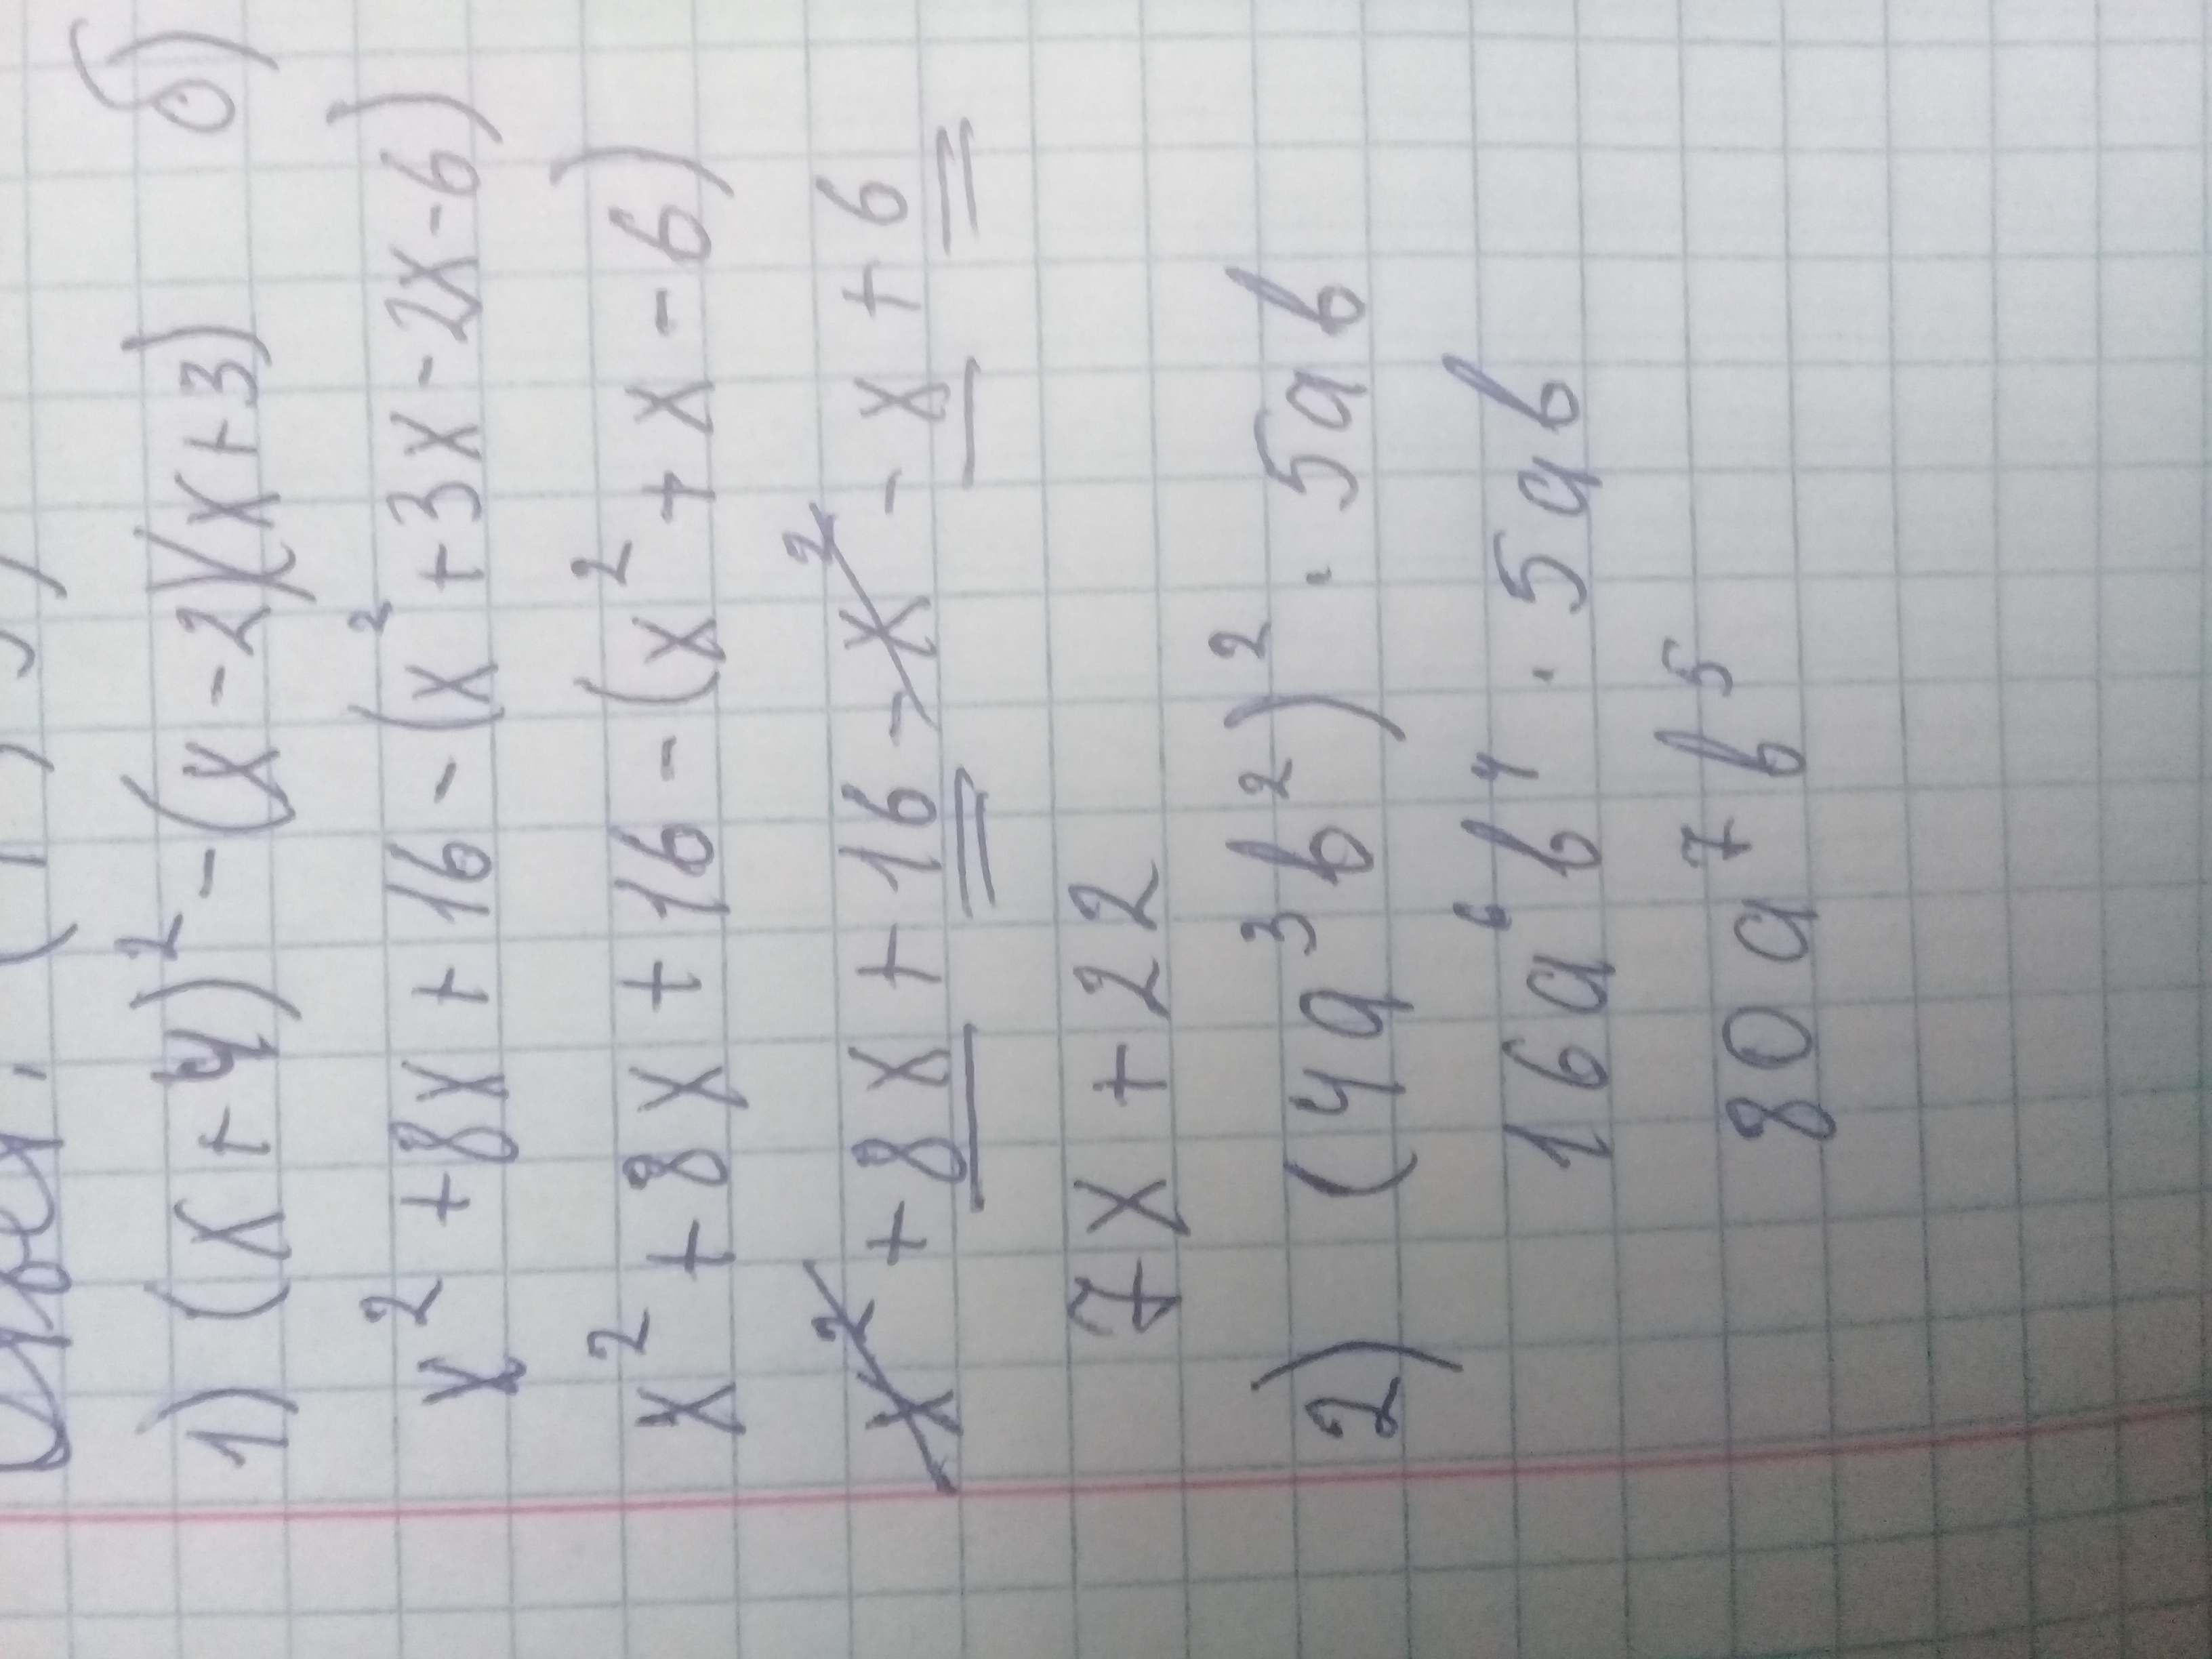 1) (x+4)² - (x-2)(x+3) б)
x² + 8x + 16 - (x² + 3x - 2x - 6)
x² + 8x + 16 - (x² + x - 6)
x² + 8x + 16 - x² - x + 6
7x + 22
2) (4a³b²)² · 5ab
16a⁶b⁴ · 5ab
80a⁷b⁵